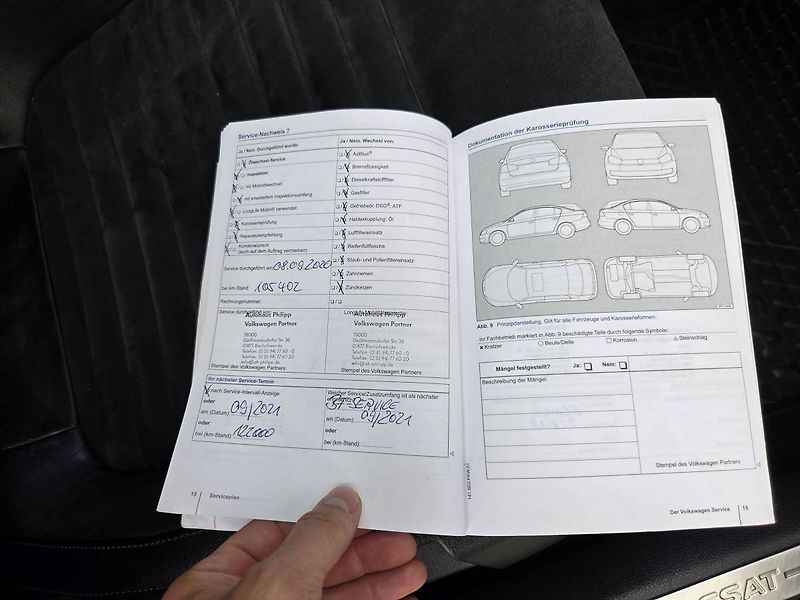 Service-Nachweis 7
Ja / Nein. Durchgeführt wurde:
Ölwechsel-Service
Inspektion
mit Motorölwechsel
mit erweitertem Inspektionsumfang
LongLife Motoröl verwendet
Karosserieprüfung
Reparaturempfehlung
Kundenwunsch
(auch auf dem Auftrag vermerken)
Service durchgeführt am: 08.09.2020
bei km-Stand: 105402
Rechnungsnummer:
Service durchgeführt von:
Autohaus Philipp
Volkswagen Partner
Stempel des Volkswagen Partners
Ja / Nein. Wechsel von:
AdBlue®
Bremsflüssigkeit
Dieselkraftstofffilter
Gasfilter
Getriebeöl: DSG®, ATF
Haldexkupplung: Öl
Luftfiltereinsatz
Reifenfüllflasche
Staub- und Pollenfiltereinsatz
Zahnriemen
Zündkerzen
Autohaus Philipp
Volkswagen Partner
Stempel des Volkswagen Partners
Ihr nächster Service-Termin
nach Service-Intervall-Anzeige
oder
am (Datum) 09/2021
oder
bei (km-Stand) 122000
Welcher Service/Zusatzumfang ist als nächster
am (Datum) 09/2021
oder
bei (km-Stand):
18
Serviceplan
Dokumentation der Karosserieprüfung
Abb. 9 Prinzipdarstellung. Gilt für alle Fahrzeuge und Karosserieformen.
Ihr Fachbetrieb markiert in Abb. 9 beschädigte Teile durch folgende Symbole:
Kratzer
Beule/Delle
Korrosion
Steinschlag
Mängel festgestellt? Ja: Nein:
Beschreibung der Mängel:
Stempel des Volkswagen Partners
Der Volkswagen Service
19
SSAT